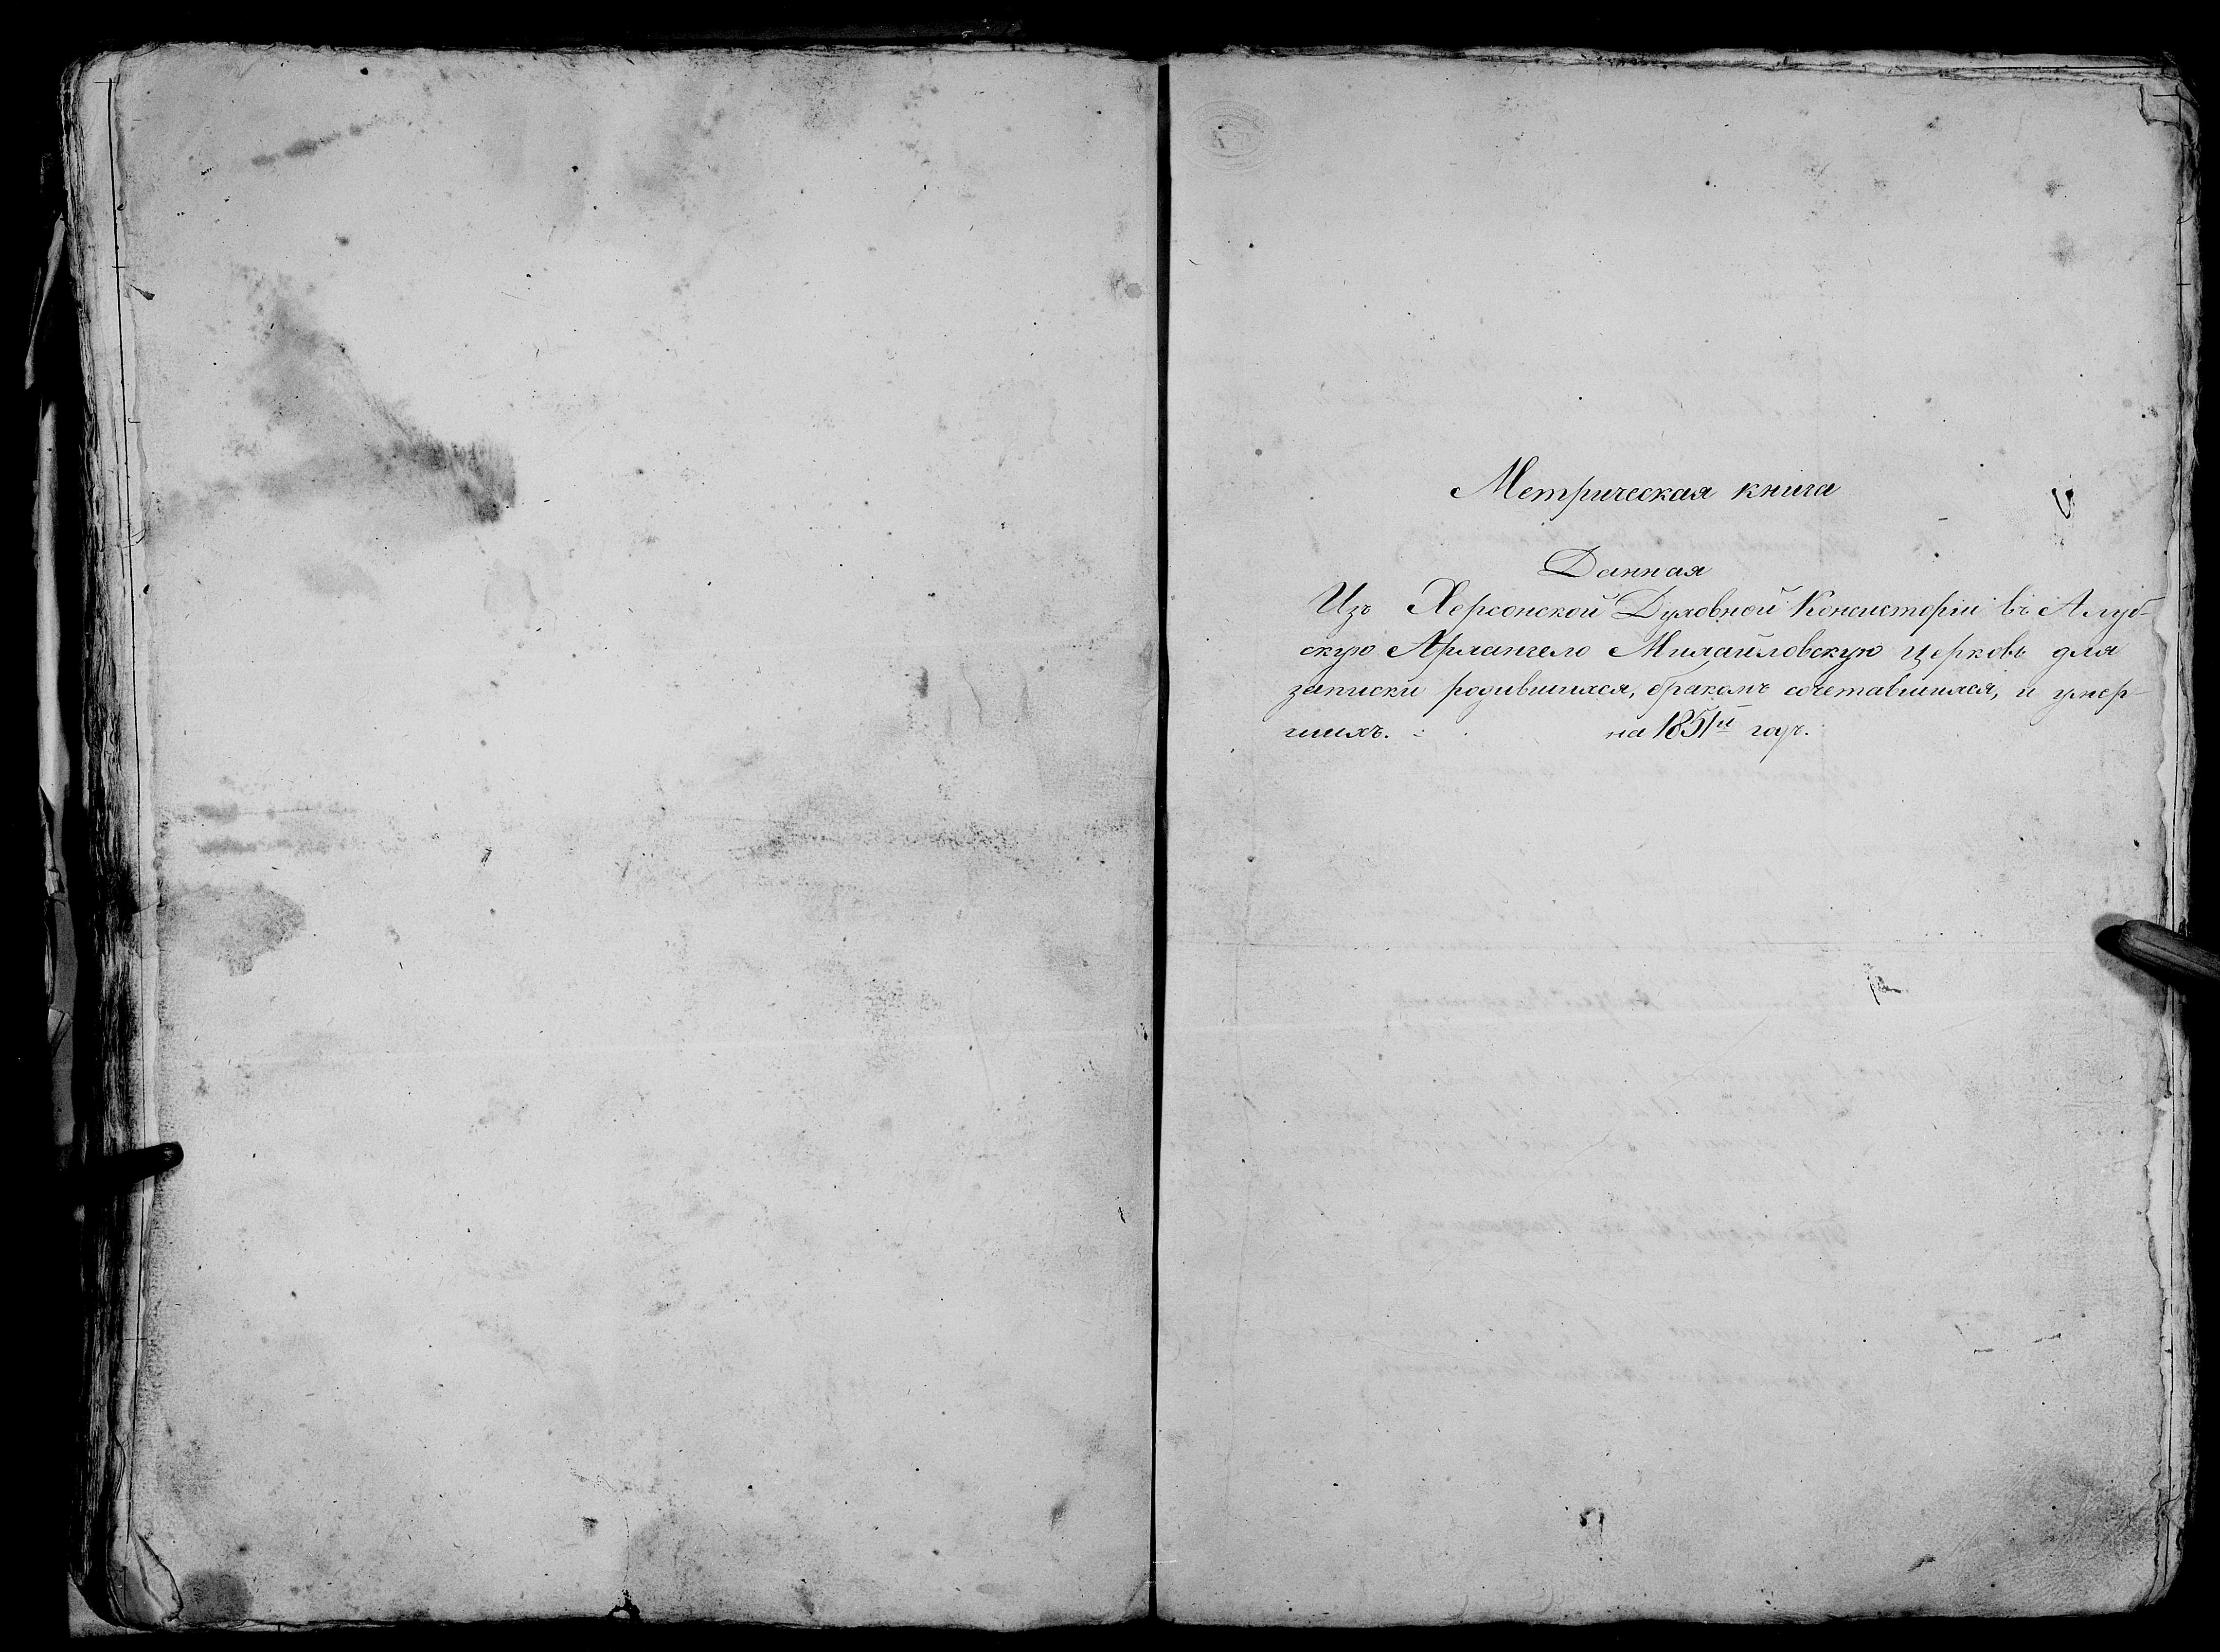 Метрическая книга
Данная
Изъ Херсонской Духовной Консисторіи въ Алуб-
скую Архангело Михайловскую церковь для
записки родившихся, бракомъ сочетавшихся, и умер-
шихъ. на 1851й годъ.